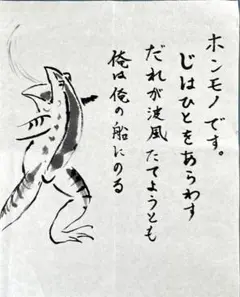 ホンモノです。
じはひとをあらわす
だれが波風たてようとも
俺は俺の船にのる